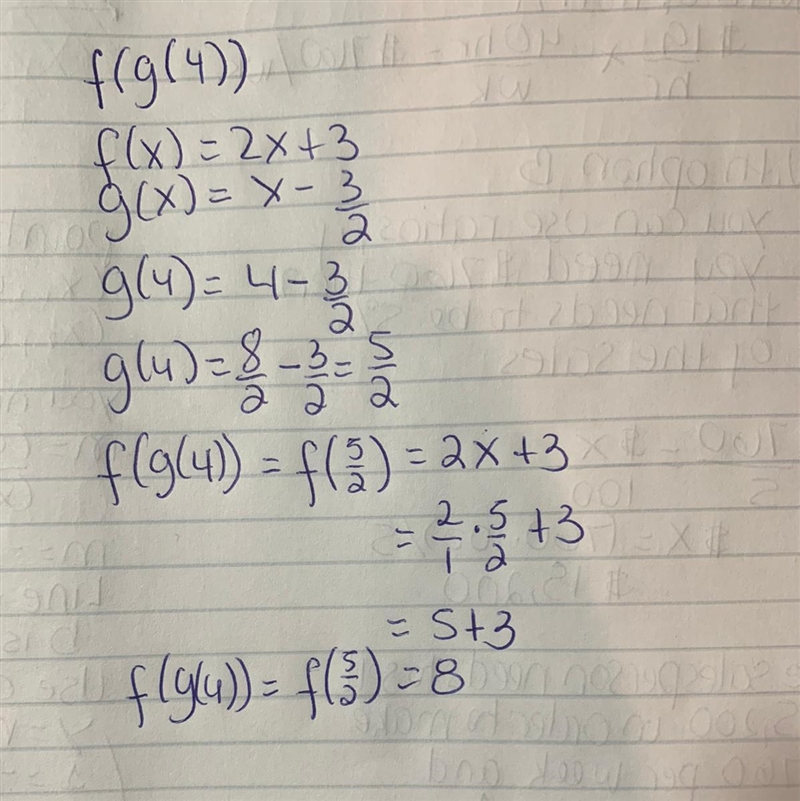 f(g(4))
f(x) = 2x + 3
g(x) = x - 3/2
g(4) = 4 - 3/2
g(4) = 8/2 - 3/2 = 5/2
f(g(4)) = f(5/2) = 2x + 3
= 2/1 · 5/2 + 3
= 5 + 3
f(g(4)) = f(5/2) = 8